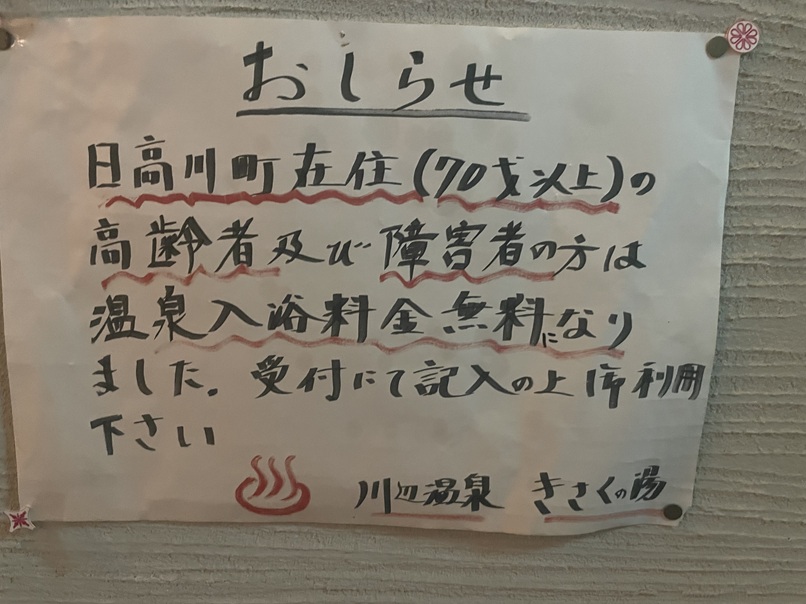 おしらせ
日高川町在住(70才以上)の
高齢者及び障害者の方は
温泉入浴料金無料になり
ました。受付にて記入の上御利用
下さい
川辺温泉 きさくの湯